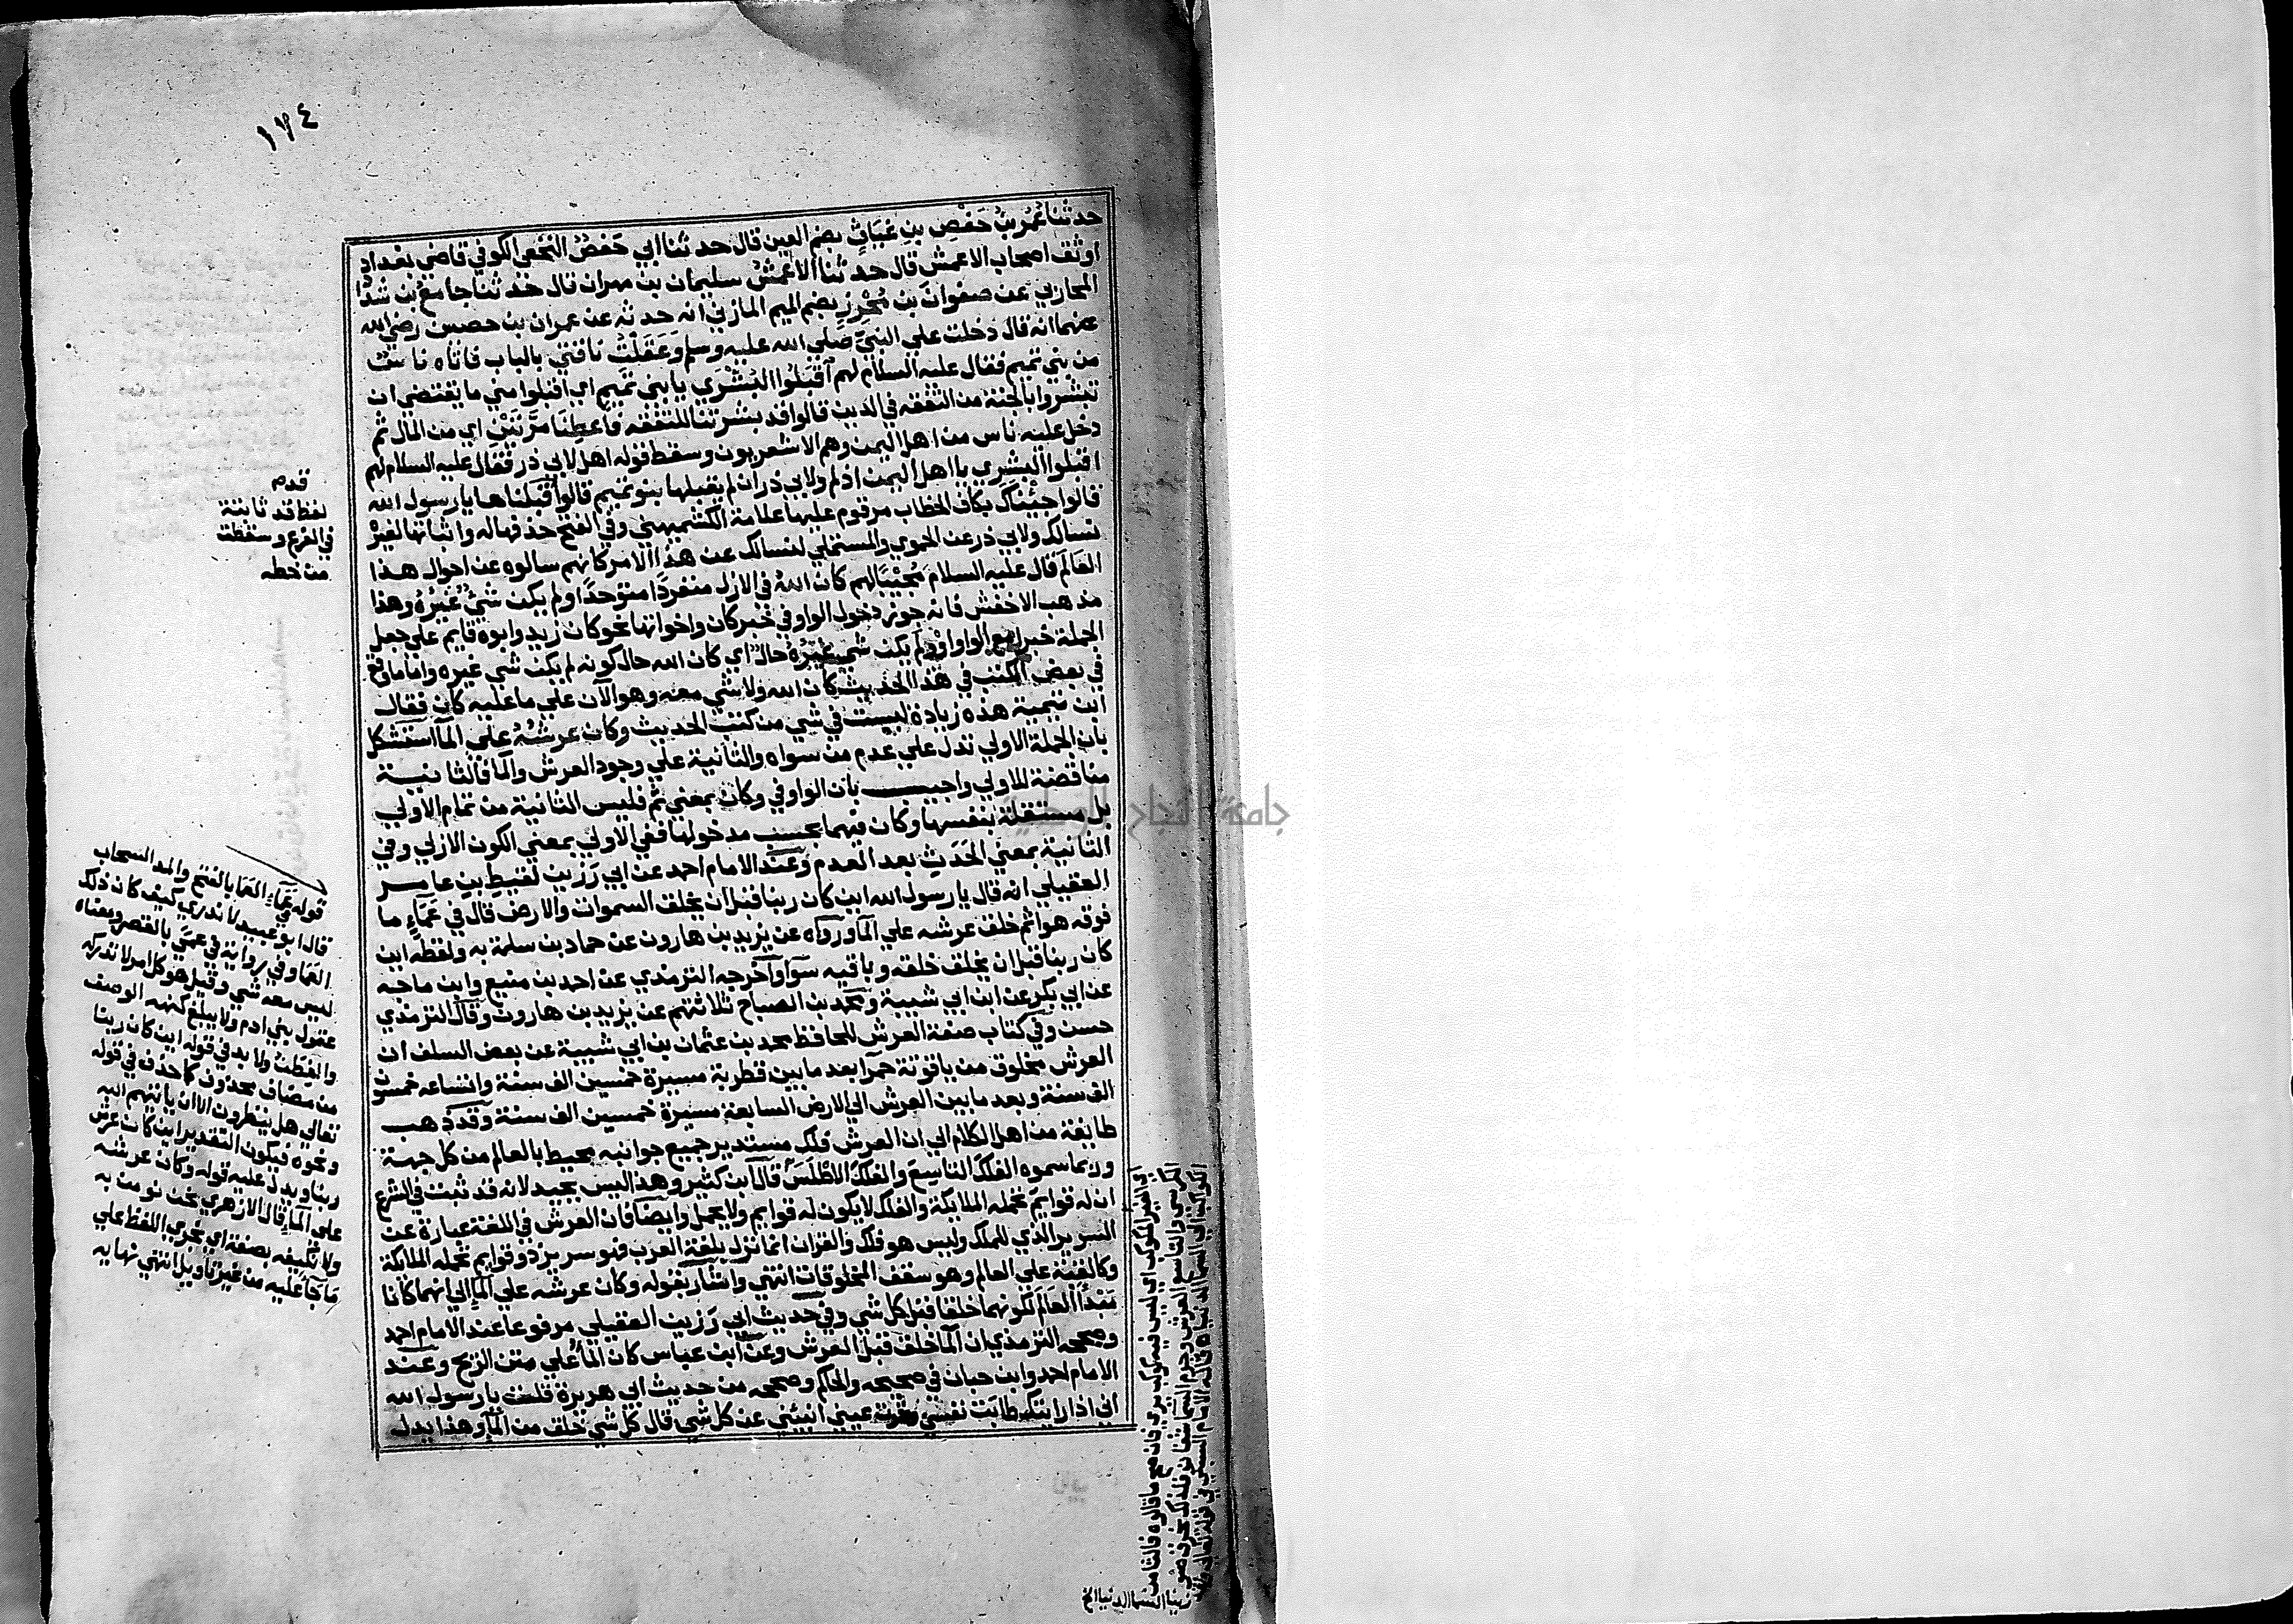 ١٧٤
حدثنا عُمَر بن حَفصِ بنِ غياثٍ بضم العين قال حد ثنا ابي حَفصُ النخعي الكوفي قاضي بغداد
اوثق اصحاب الاعمش قال حد ثنا الاعمشُ سليمان بن مهران قال حد ثنا جامعُ بن شدا
المحاربي عن صفوان بن مُحْرِزٍ بضم الميم المازني انه حد ثه عن عمران بن حصين رضي الله
عنهما انه قال دخلت علي النبي صلي الله عليه وسلم وعَقَلْتُ ناقتي بالباب فاتاه ناسٌ
من بني تميم فقال عليه السلام لهم اَقبَلوا البُشْرَي يا بني تميم اي اقبلوا مني ما يقتضي ان
تبشروا بالجنة من التفقه في الدين قالوا قد بشرتنا للتفقه فاعطِنا مرتين اي من المال ثم
دخل عليه ناس من اهل اليمن وهم الاشعريون وسقط قوله اهل لابي ذر فقال عليه السلام لهم
اقبلوا البشري يا اهل اليمن اذ لم ولابي ذر ان لم يقبلها بنو تميم قالوا قبلنا ها يا رسول الله
قالوا جئناك بكاف الخطاب مرقوم عليها علامة الكشميهني وفي الفتح حذفها له واثباتها لغيره
نسالك ولابي ذر عن الحموي والمستملي لنسالك عن هذا الامر كانهم سالوه عن احوال هذا
العالم قال عليه السلام مُجيْبًا لهم كان اللهُ في الازل منفردًا متوحدًا ولم يكن شيٌ غيرُه وهذا
مذهب الاخفش فانه جوز دخول الواو في خبر كان واخواتها نحو كان زيد وابوه قايم علي جعل
الجملة خبرا مع الواو او ولم يكن شي غيرُه حالٌ اي كان الله حال كونه لم يكن شي غيره واما ما وقع
في بعض الكتب في هذا الحديث كان الله ولا شي معه وهو الآن علي ما عليه كان فقال
ابن تيمية هذه زيادة ليست في شي من كتب الحديث وكان عرشُهُ علي المآ استشكل
بان الجملة الاولي تدل علي عدم من سواه والثانية علي وجود العرش والما فالثانيــة
مناقضة للاولي واجيب بان الواو في وكان بمعني ثم فليس الثانية من تمام الاولي
بل مستقلة بنفسها وكان فيهما بحسب مدخولها ففي الاولي بمعني الكون الازلي وفي
الثانية بمعني الحَدَثِ بعد العدم وعند الامام احمد عن ابي رَزين لقيط بن عامر
العقيلي انه قال يا رسول الله اين كان ربنا قبل ان يخلق السموات والارض قال في عَمَاءٍ ما
فوقه هوا ثم خلق عرشه علي المآ ورواه عن يزيد بن هارون عن حماد بن سلمة به ولفظه اين
كان ربنا قبل ان يخلق خلقه وباقيه سوآ واخرجه الترمذي عن احمد بن منيع وابن ماجه
عن ابي بكر عن ابن ابي شيبة ومحمد بن الصباح ثلاثتهم عن يزيد بن هارون وقال الترمذي
حسن وفي كتاب صفة العرش للحافظ محمد بن عثمان بن ابي شيبة عن بعض السلف ان
العرش مخلوق من ياقوتة حمرآ بعد ما بين قطريه مسيرة خمسين الف سنة واتساعه خمسون
الف سنة وبعد ما بين العرش الي الارض السابعة مسيرة خمسين الف سنة وقد ذهب
طايفة من اهل الكلام الي ان العرش فلك مستدير جميع جوانبه محيط بالعالم من كل جهة
وربما سموه الفلك التاسع والفلك الاطْلَسَ قال ابن كثير وهذا ليس بجيد لانه قد ثبت في الشرع
ان له قوايم تحمله الملايكة والفلك لا يكون له قوايم ولا يحمل وايضا فان العرش في اللغة عبارة عن
السرير الذي للملك وليس هو فلك والقران انما نزل بلغة العرب فهو سرير ذو قوايم تحمله الملايكة
وكالقبة علي العالم وهو سقف المخلوقات انتهي واشار بقوله وكان عرشه علي المآ الي انهما كانا
مَبْدَأَ العالَم لكونهما خلقا قبل كل شي وفي حديث ابي رَزين العقيلي مرفوعا عند الامام احمد
وصححه الترمذي ان المآ خلق قبل العرش وعن ابن عباس كان المآ علي متن الريح وعند
الامام احمد وابن حبان في صحيحه والحاكم وصححه من حديث ابي هريرة قلت يا رسول الله
اني اذا رايتك طابت نفسي وقرت عيني انبئني عن كل شي قال كل شي خلق من المآ وهذا يدل
قدم
لفظ قد ثابتة
في الفرع وسقطت
من خطه
قوله عَمَاءٍ العَمَا بالفتح والمد السحاب
قال ابو عبيد لا ندري كيف كان ذلك
العما وفي رواية في عمًي بالقصر ومعناه
ليس معه شي وقيل هو كل امر لا تدركه
عقول بني ادم ولا يبلغ كنهه الوصف
والفِطَنُ ولا بد في قوله اين كان ربنا
من مضاف محذوف كما حذف في قوله
تعالي هل ينظرون الا ان ياتيهم الله
ونحوه فيكون التقدير اين كان عرش
ربنا ويدل عليه قوله وكان عرشه
علي المآ قال الازهري نحن نومن به
ولا نكيفه بصفة اي نجري اللفظ علي
ما جآ عليه من غير تاويل انتهي نهايه